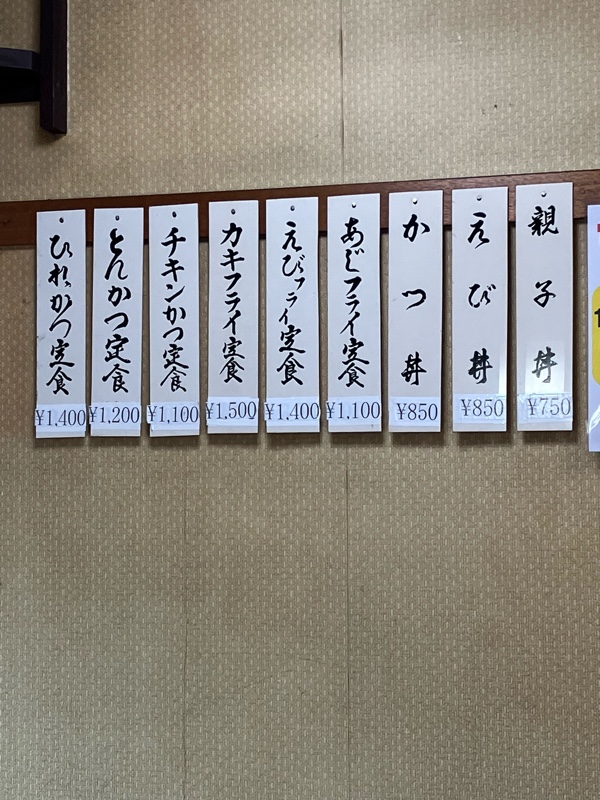 親子丼
¥750
えび丼
¥850
かつ丼
¥850
あじフライ定食
¥1,100
えびフライ定食
¥1,400
カキフライ定食
¥1,500
チキンかつ定食
¥1,100
とんかつ定食
¥1,200
ひれかつ定食
¥1,400